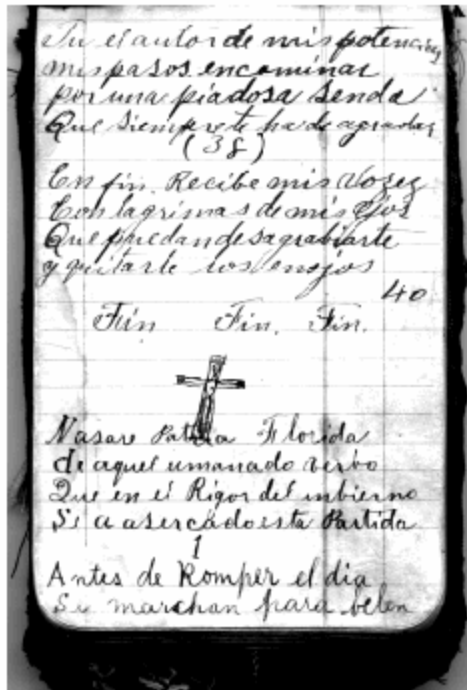 Tu el autor de mis potencias
mis pasos encaminar
por una piadosa senda
Que siempre te ha de agradar
(38)
En fin Recibe mis Vozez
Con lagrimas de mis ojos
Que puedan desagrabiarte
y quitarte los enojos
40
Fin Fin. Fin.
Nasare Patria Florida
de aquel umanado verbo
Que en el Rigor del inbierno
Se a asercado esta Partida
1
Antes de Romper el dia
Se marchan para belen